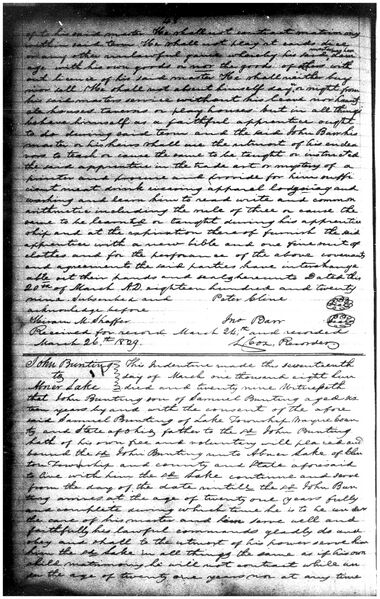 of his said master He shall not contract matrimony
within said term He shall not play at cards dice
or any other unlawful game whereby his master may
with his own goods or nor the goods of others with
out licence of his said master He shall neither buy
nor sell He shall not absent himself day or night from
his said masters service without his leave nor haunt
ale houses taverns or play houses but in all things
behave himself as a faithful apprentice ought
to do during said term and the said John Barr his
master or his heirs shall use the utmost of his endea
vor to teach or cause the same to be taught or instructed
the said apprentice in the trade or mystery of a
and procure and provide for him suffi
cient meat drink wearing apparel lodging and
washing and learn him to read write and common
arithmetic including the rule of three or cause the
same to be learned or taught during his apprentice
ship and at the expiration thereof furnish the said
apprentice with a new bible and one fine suit of
clothes and for the performance of the above covenants
and agreements the said parties have interchange
able set their hands and seals hereunto Dated this
20th of March A.D. eighteen hundred and twenty
nine Subscribed and Peter Cline
acknowledge before
Hiram M. Shaffer Jno Barr
Received for record March 26th and recorded
March 26th 1829. L Cox Recorder
John Bunting This Indenture made this seventeenth
to day of March one thousand eight hun
Abner Lake dred and twenty nine Witnesseth
that John Bunting son of Samuel Bunting aged six
teen years by and with the consent of the afore
said Samuel Bunting of Lake Township Wayne Coun
ty and State of Ohio father to the sd John Bunting
hath of his own free and voluntary will placed and
bound the sd John Bunting unto Abner Lake of
Township and county and State aforesaid
to live with him the sd Lake continue and serve
from the day of the date until the sd John Bun
ting arives at the age of twenty one years fully
and complete during which time he is to be under
the care of his master and him serve well and
faithfully his lawful commands gladly do and
obey and shall to the utmost of his power serve him
him the sd Lake in all things the same as if his own
child matrimony he will not contract while un
der the age of twenty one years nor at any time